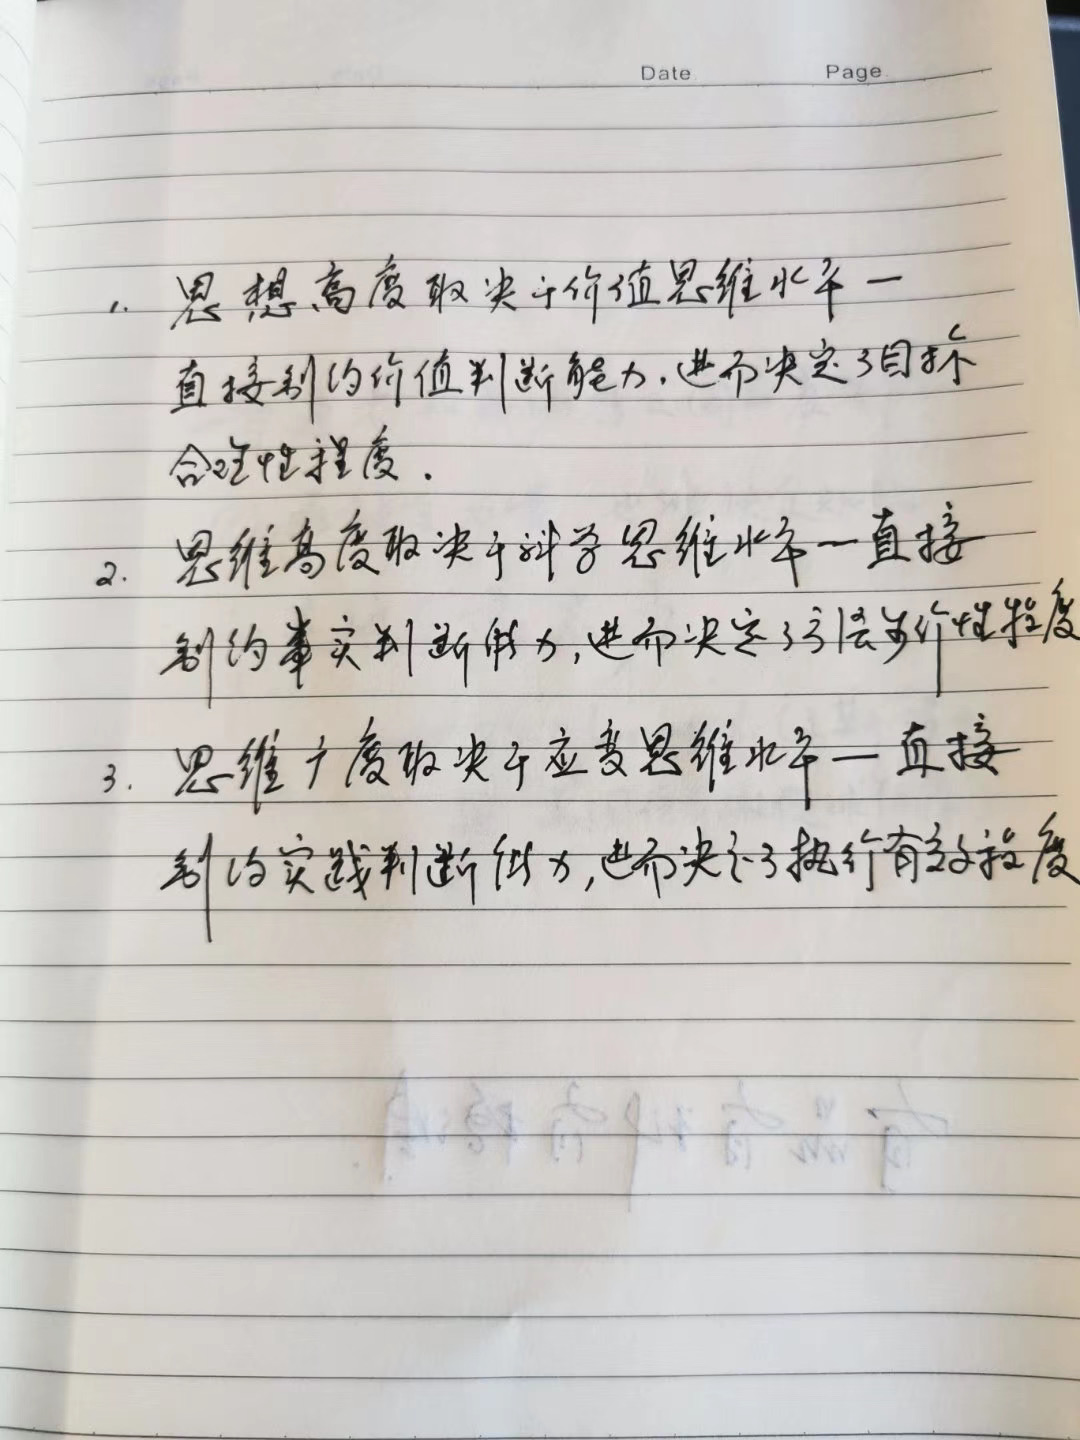 Date Page
1. 思想高度取决于价值思维水平一
直接制约价值判断能力,进而决定了目标
合理性程度.
2. 思维高度取决于科学思维水平一直接
制约事实判断能力,进而决定了方法可行性程度
3. 思维广度取决于应变思维水平一直接
制约实践判断能力,进而决定了执行有效程度